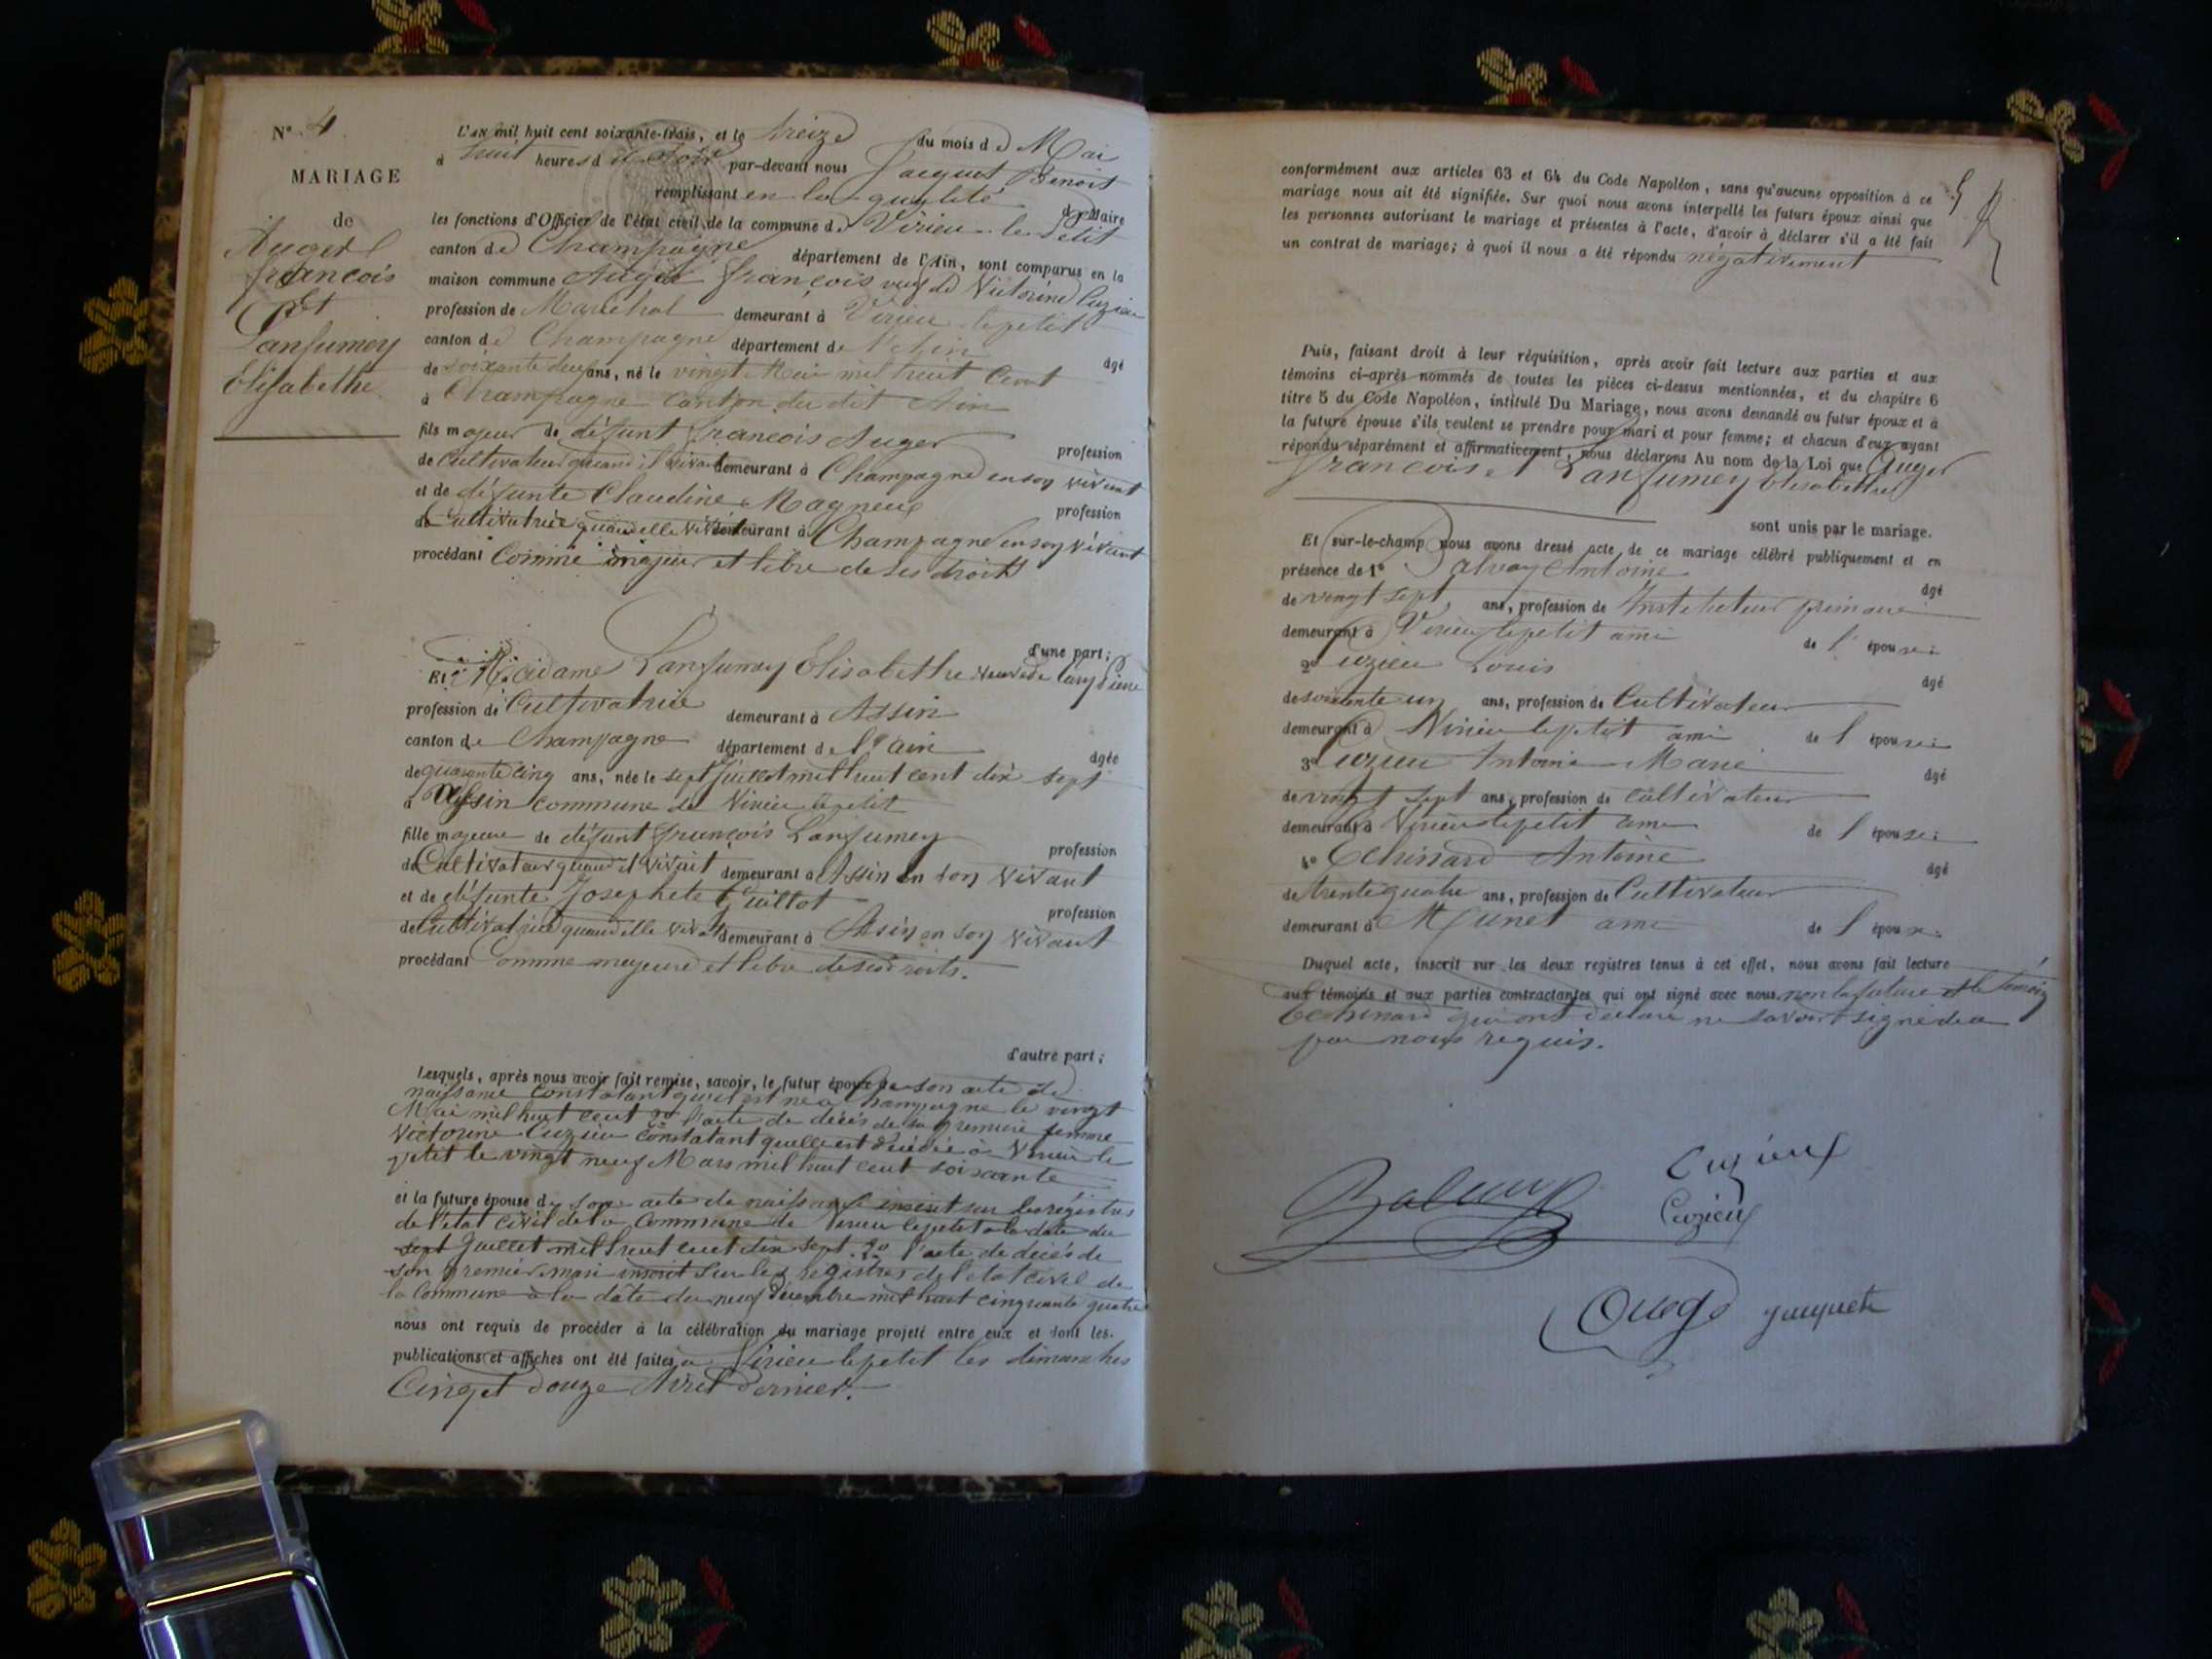 N° 4
MARIAGE
de
Auger
françois
Et
Lanfumey
Elisabethe
L'an mil huit cent soixante-trois, et le treize du mois de Mai
à huit heures du soir par-devant nous Jacquet Benoit
remplissant en la qualité de Maire
les fonctions d'Officier de l'état civil de la commune de Virieu le Petit
canton de Champagne département de l'Ain, sont comparus en la
maison commune Auger françois veuf de Victorine Cuzieu
profession de Maréchal demeurant à Virieu le petit
canton de Champagne département de l'Ain âgé
de soixante deux ans, né le vingt Mai mil huit Cent
à Champagne canton du dit Ain
fils majeur de défunt françois Auger profession
de Cultivateur quand il vivait demeurant à Champagne en son vivant
et de défunte Claudine Magneux profession
de Cultivatrice quand elle vivait demeurant à Champagne en son vivant
procédant Comme majeur et libre de ses droits
d'une part;
Et Madame Lanfumey Elisabethe veuve de
profession de Cultivatrice demeurant à Assin
canton de Champagne département de l'ain âgée
de quarante cinq ans, née le sept Juillet mil huit cent dix sept
à Assin commune de Virieu le petit
fille majeure de défunt françois Lanfumey profession
de Cultivateur quand il vivait demeurant à Assin en son vivant
et de défunte Josephete Guillot profession
de Cultivatrice quand elle vivat demeurant à Assin en son vivant
procédant Comme majeure et libre de ses droits.
d'autre part;
Lesquels, après nous avoir fait remise, savoir, le futur époux de son acte de
naissance constatant qu'il est né à Champagne le vingt
Mai mil huit cent 2° l'acte de décès de sa premiere femme
Victorine Cuzieu constatant quelle est décédée à Virieu le
petit le vingt neuf Mars mil huit cent soixante
et la future épouse de son acte de naissance inscrit sur les régistres
de l'état civil de la Commune de Virieu le petit à la date du
sept Juillet mil huit cent dix sept. 2° l'acte de décés de
son premier mari inscrit sur les registres de l'etat civil de
la Commune à la date du neuf Décembre mil huit cinquante quatre
nous ont requis de procéder à la célébration du mariage projeté entre eux et dont les
publications et affiches ont été faites à Virieu le petit les dimanches
Cinq et douze Avril dernier.
conformément aux articles 63 et 64 du Code Napoléon, sans qu'aucune opposition à ce
mariage nous ait été signifiée. Sur quoi nous avons interpellé les futurs époux ainsi que
les personnes autorisant le mariage et présentes à l'acte, d'avoir à déclarer s'il a été fait
un contrat de mariage; à quoi il nous a été répondu négativement
Puis, faisant droit à leur réquisition, après avoir fait lecture aux parties et aux
témoins ci-après nommés de toutes les pièces ci-dessus mentionnées, et du chapitre 6
titre 5 du Code Napoléon, intitulé Du Mariage, nous avons demandé au futur époux et à
la future épouse s'ils veulent se prendre pour mari et pour femme; et chacun d'eux ayant
répondu séparément et affirmativement, nous déclarons Au nom de la Loi que Auger
francois et Lanfumey Elisabethe
sont unis par le mariage.
Et sur-le-champ nous avons dressé acte de ce mariage célébré publiquement et en
présence de 1° Balvay Antoine âgé
de vingt sept, ans, profession de Instituteur primaire
demeurant à Virieu le petit ami de l'épouse:
2° Cuzieu Louis âgé
de soixante un ans, profession de Cultivateur
demeurant à Virieu le petit ami de l'épouse:
3° Cuzieu Antoine Marie âgé
de vingt sept ans, profession de cultivateur
demeurant à Virieu le petit ami de l'épouse:
4° Echinard Antoine âgé
de trente quatre ans, profession de Cultivateur
demeurant à Munet ami de l'épouse.
Duquel acte, inscrit sur les deux registres tenus à cet effet, nous avons fait lecture
aux témoins et aux parties contractantes qui ont signé avec nous, non la future et le témoin
Echinard qui ont déclaré ne savoir signé de ce
par nous requis.
Balvay
Cuzieux
Cuzieux
Auger
Jacquet